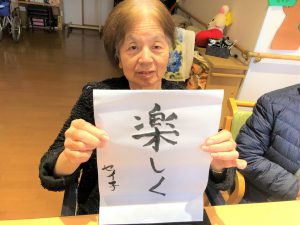 楽しく
セイ子